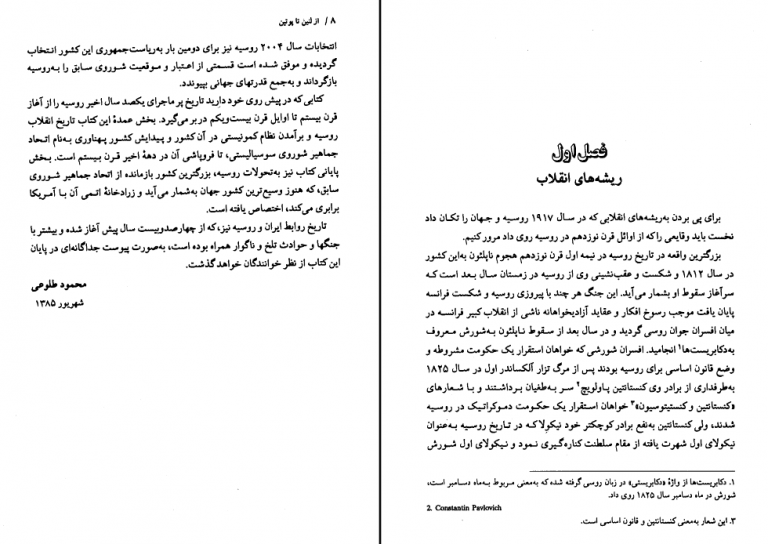 ۸ / از لنین تا پوتین
انتخابات سال ۲۰۰۴ روسیه نیز برای دومین بار به‌ریاست‌جمهوری این کشور انتخاب
گردیده و موفق شده است قسمتی از اعتبار و موقعیت شوروی سابق را به‌روسیه
بازگرداند و به‌جمع قدرتهای جهانی بپیوندد.
کتابی که در پیش روی خود دارید تاریخ پر ماجرای یکصد سال اخیر روسیه را از آغاز
قرن بیستم تا اوایل قرن بیست‌ویکم در بر می‌گیرد. بخش عمدهٔ این کتاب تاریخ انقلاب
روسیه و برآمدن نظام کمونیستی در آن کشور و پیدایش کشور پهناوری به‌نام اتحاد
جماهیر شوروی سوسیالیستی، تا فروپاشی آن در دههٔ اخیر قرن بیستم است. بخش
پایانی کتاب نیز به‌تحولات روسیه، بزرگترین کشور بازمانده از اتحاد جماهیر شوروی
سابق، که هنوز وسیع‌ترین کشور جهان به‌شمار می‌آید و زرادخانهٔ اتمی آن با آمریکا
برابری می‌کند، اختصاص یافته است.
تاریخ روابط ایران و روسیه نیز، که از چهارصدوبیست سال پیش آغاز شده و بیشتر با
جنگها و حوادث تلخ و ناگوار همراه بوده است، به‌صورت پیوست جداگانه‌ای در پایان
این کتاب از نظر خوانندگان خواهد گذشت.
محمود طلوعی
شهریور ۱۳۸۵
فصل اول
ریشه‌های انقلاب
برای پی بردن به‌ریشه‌های انقلابی که در سال ۱۹۱۷ روسیه و جهان را تکان داد
نخست باید وقایعی را که از اوائل قرن نوزدهم در روسیه روی داد مرور کنیم.
بزرگترین واقعه در تاریخ روسیه در نیمه اول قرن نوزدهم هجوم ناپلئون به‌این کشور
در سال ۱۸۱۲ و شکست و عقب‌نشینی وی از روسیه در زمستان سال بعد است که
سرآغاز سقوط او بشمار می‌آید. این جنگ هر چند با پیروزی روسیه و شکست فرانسه
پایان یافت موجب رسوخ افکار و عقاید آزادیخواهانه ناشی از انقلاب کبیر فرانسه در
میان افسران جوان روسی گردید و در سال بعد از سقوط ناپلئون به‌شورش معروف
به‌دکابریست‌ها۱ انجامید. افسران شورشی که خواهان استقرار یک حکومت مشروطه و
وضع قانون اساسی برای روسیه بودند پس از مرگ تزار آلکساندر اول در سال ۱۸۲۵
به‌طرفداری از برادر وی کنستانتین پاولویچ۲ سر به‌طغیان برداشتند و با شعارهای
«کنستانتین و کنستیتوسیون»۳ خواهان استقرار یک حکومت دموکراتیک در روسیه
شدند، ولی کنستانتین به‌نفع برادر کوچکتر خود نیکولا که در تاریخ روسیه به‌عنوان
نیکولای اول شهرت یافته از مقام سلطنت کناره‌گیری نمود و نیکولای اول شورش
۱. دکابریست‌ها از واژهٔ «دکابریستی» در زبان روسی گرفته شده که به‌معنی مربوط به‌ماه دسامبر است،
شورش در ماه دسامبر سال ۱۸۲۵ روی داد.
2. Constantin Pavlovich
۳. این شعار به‌معنی کنستانتین و قانون اساسی است.